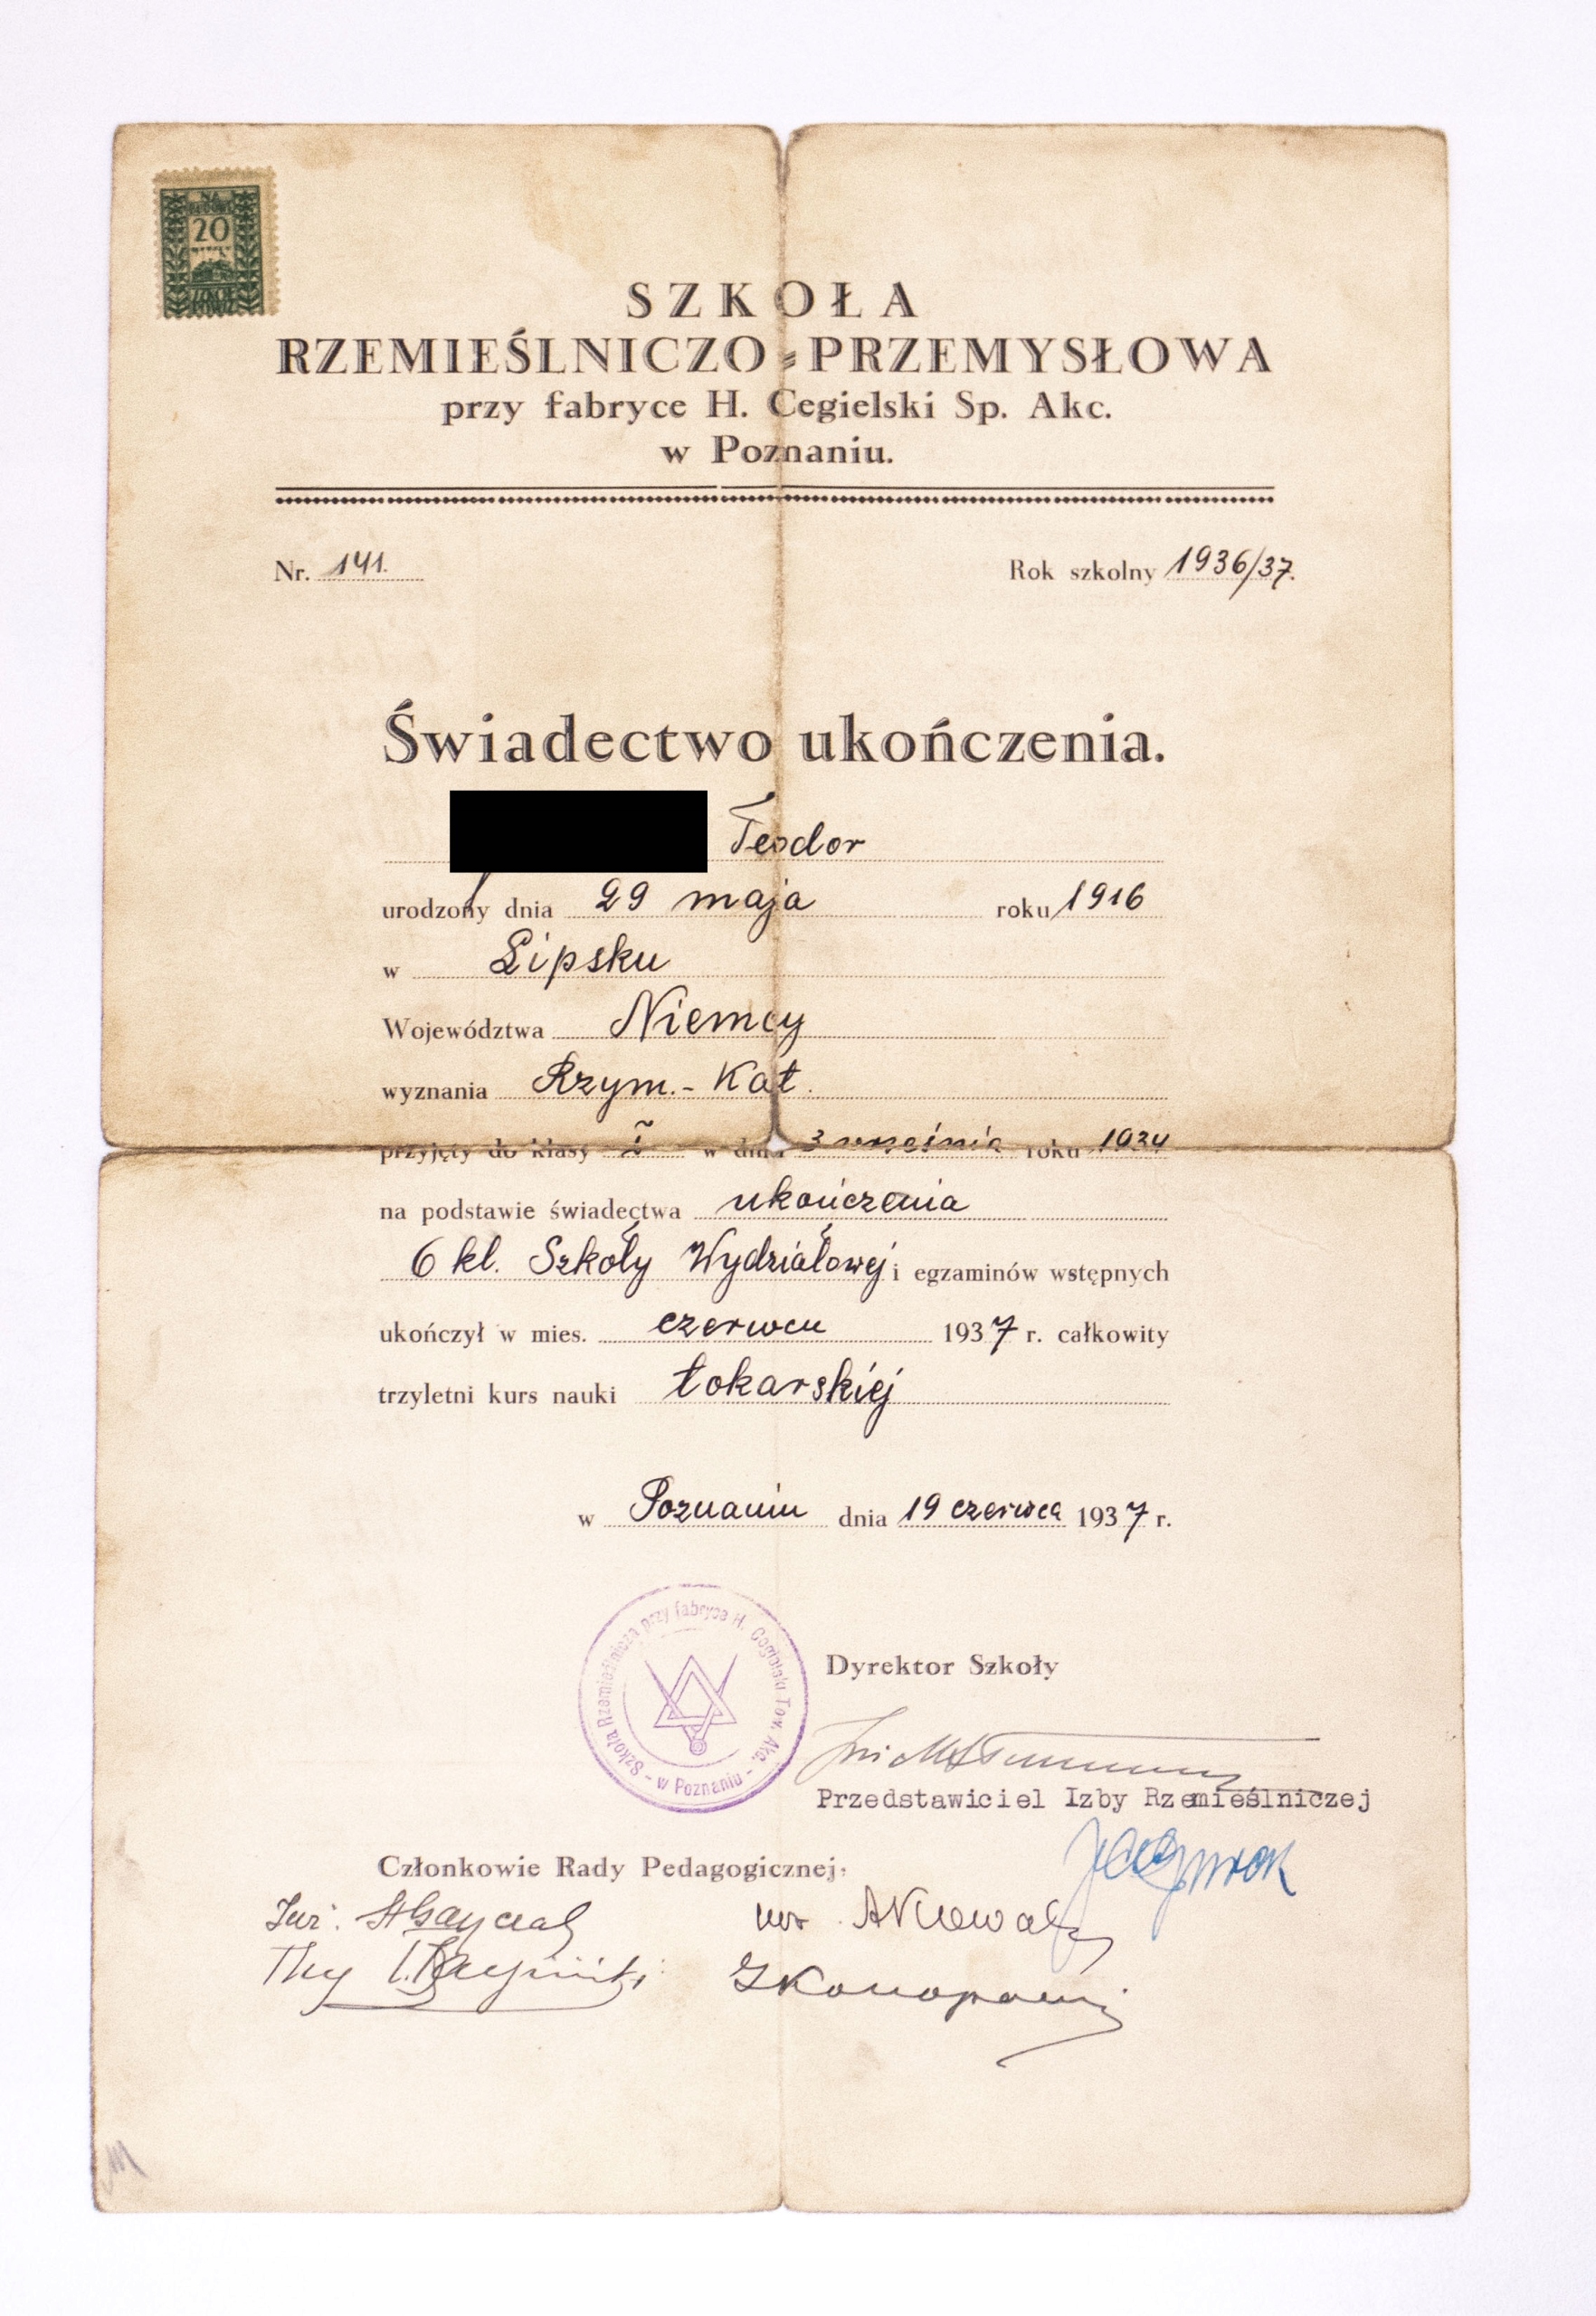 NA
20
SZKOŁA
RZEMIEŚLNICZO-PRZEMYSŁOWA
przy fabryce H. Cegielski Sp. Akc.
w Poznaniu.
Nr. 141. Rok szkolny 1936/37.
Świadectwo ukończenia.
Teodor
urodzony dnia 29 maja roku 1916
w Lipsku
Województwa Niemcy
wyznania Rzym.- Kat.
przyjęty do klasy I w dniu 3 września roku 1934
na podstawie świadectwa ukończenia
6 kl. Szkoły Wydziałowej i egzaminów wstępnych
ukończył w mies. czerwcu 1937 r. całkowity
trzyletni kurs nauki tokarskiej
w Poznaniu dnia 19 czerwca 1937 r.
Szkoła Rzemieślnicza przy fabryce H. Cegielski Tow. Akc.
- w Poznaniu -
Dyrektor Szkoły
Przedstawiciel Izby Rzemieślniczej
Członkowie Rady Pedagogicznej: